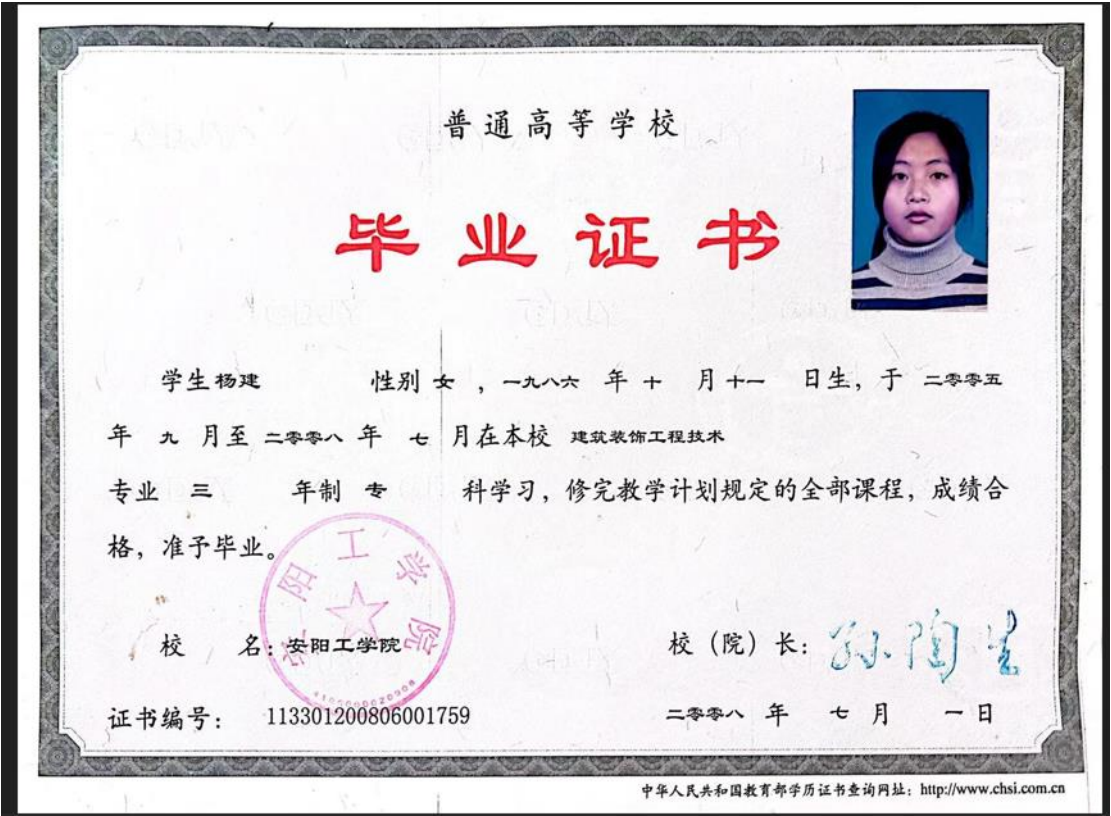 普通高等学校
毕业证书
学生 杨建 性别 女 ，一九八六 年 十 月 十一 日生，于 二零零五
年 九 月至 二零零八 年 七 月在本校 建筑装饰工程技术
专业 三 年制 专 科学习，修完教学计划规定的全部课程，成绩合
格，准予毕业。
安阳工学院
4105000020908
校 名：安阳工学院 校（院）长：孙陶生
证书编号： 113301200806001759 二零零八 年 七 月 一 日
中华人民共和国教育部学历证书查询网址：http://www.chsi.com.cn